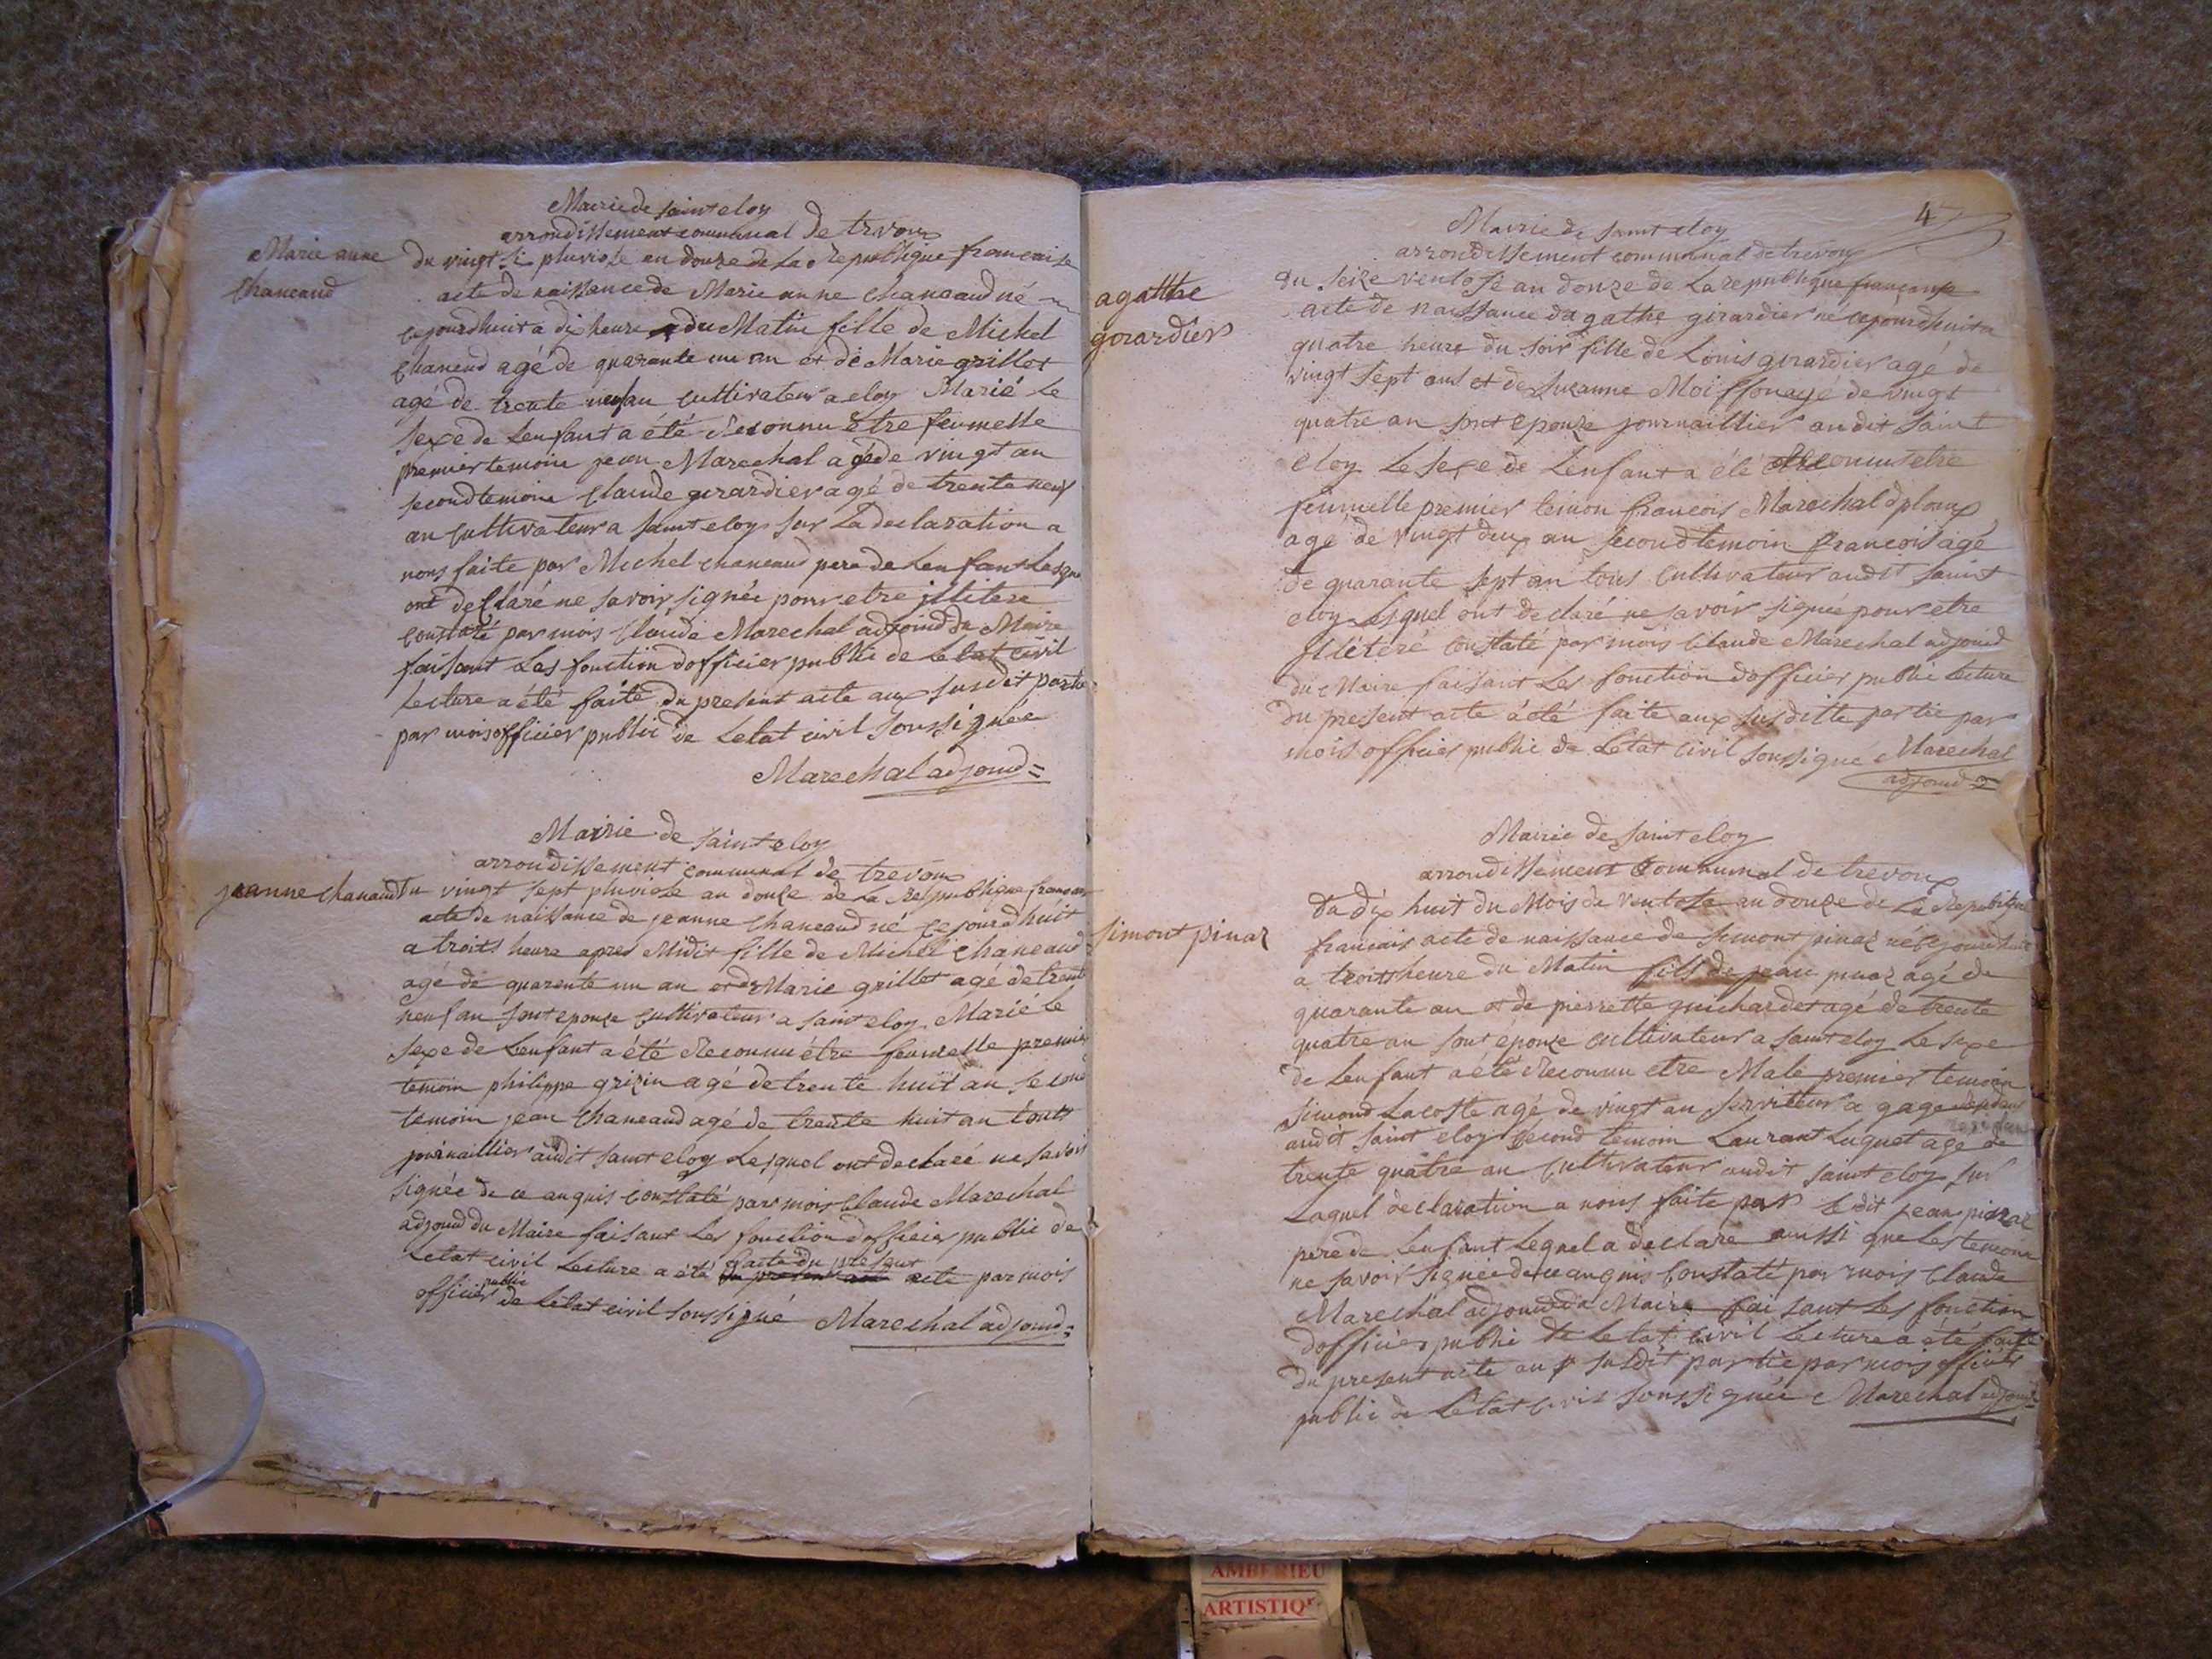 Mairie de saint eloy
arrondissement communal de trevoux
Marie anne
Chaneaud
du vingt si pluviose an douze de La Republique francaise
acte de naissance de Marie anne chaneaud né
cejourdhuit a dix heure du Matin fille de Michel
Chaneud agé de quarante un an et de Marie grillet
agé de trente neuf an Cultivateur a eloy Marié Le
sexe de Lenfant a été Reconnu être feumelle
premier temoin jean Marechal agéde vingt an
second temoin Claude gerardier agé de trente neuf
an Cultivateur a saint eloy sur La declaration a
nous faite par Michel chaneaud pere de Lenfant Lesque
ont declaré ne savoir signée pour etre jlitere
Constaté par mois Claude Marechal adjoind du Maire
faisant Les fonction dofficier public de Letat civil
Lecture a été faite du present acte aux susdit partie
par mois officier public de Letat civil soussignée
Marechal adjoind=
Mairie de saint eloy
arrondissement communal de trevoux
jeanne Chanaud
Du vingt sept pluviose an douze de La Republique francais
acte de naissance de jeanne Chaneaud né Cejourdhuit
a troits heure apres Midit fille de Michel Chaneaud
agé de quarente un an et de Marie grillet agé de trente
neuf an sont epouze Cultivateur a saint eloy Marié le
sexe de Lenfant a été Reconnu être feumelle premier
temoin philippe grizin agé de trente huit an second
temoin jean Chaneaud agé de trente huit an touts
journaillier audit saint eloy Lesquel ont declaré ne savoir
signée de ce anquis Constaté par mois Claude Marechal
adjoind du Maire faisant Les fonction dofficier public de
Letat civil Lecture a été faite du present acte par mois
officier public de Létat civil soussigné Marechal adjoind=
4
Mairie de saint eloy
arrondissement communal de trevoux
agatthe
gerardier
Du seize ventose an douze de La republique francaise
acte de naissance dagathe girardier né cejourdhuit a
quatre heure du soir fille de Louis gerardier agé de
vingt sept ans et de suzanne Moissonagé de vingt
quatre an sont epouze journaillier audit saint
eloy Le sexe de Lenfant a été Reconnus etre
feumelle premier temion francois Marechal
agé de vingt deux an second temoin francois agé
de quarante sept an tous Cultivateur audit saint
eloy Lesquel ont declaré ne savoir signée pour etre
jlliteré Constaté par mois Claude Marechal adjoind
du Maire faisant Les fonction dofficier public Lecture
du present acte a été faite aux susditte partie par
mois officier public de Letat civil soussigné Marechal
adjoind=
Mairie de saint eloy
arrondissement Communal de trevoux
simont pinaz
Du dix huit du Mois de Ventose an douze de La Republique
francais acte de naissance de simont pinaz né Cejourdhuit
a troits heure du Matin fils de jean pinaz agé de
quarante an et de pierrette guichardet agé de trente
quatre an sont epouze cultivateur a saint eloy Le sexe
de Lenfant a été Reconnu etre Male premier temoin
simond Lacoste agé de vingt an serviteur a gage
audit saint eloy second temoin Laurant Luquet age de
trente quatre an Cultivateur audit saint eloy sur
Laquel declaration a nous faite par Ledit jean pinaz
pere de Lenfant Lequel a declare aussi que Les temoin
ne savoir signée de ce anquis Constaté par mois Claude
Marechal adjoind du Maire faisant Les fonction
dofficier public de Letat civil Lecture a été faitte
du present acte aux susdit partie par mois officier
public de Letat civil soussignée Marechal adjoind=
AMBERIEU
ARTISTIQ